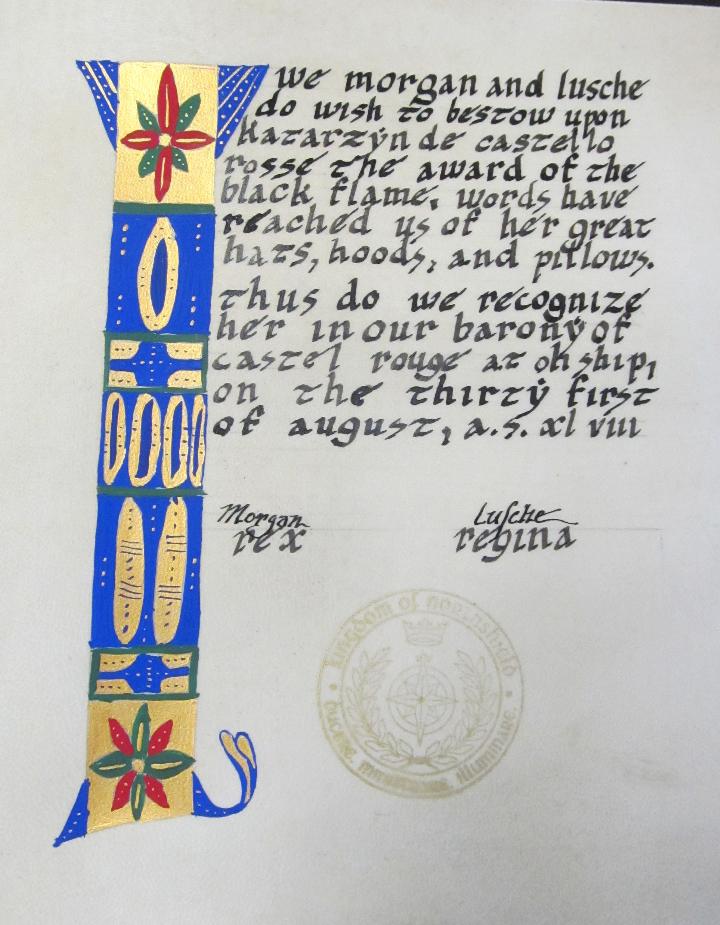 we morgan and lusche
do wish to bestow upon
katarzÿn de castello
rosse the award of the
black flame, words have
reached us of her great
hats, hoods, and pillows.
thus do we recognize
her in our baronÿ of
castel rouge at oh ship,
on the thirtÿ first
of august, a.s. xl viii
Morgan Lusche
rex regina
kingdom of northshield